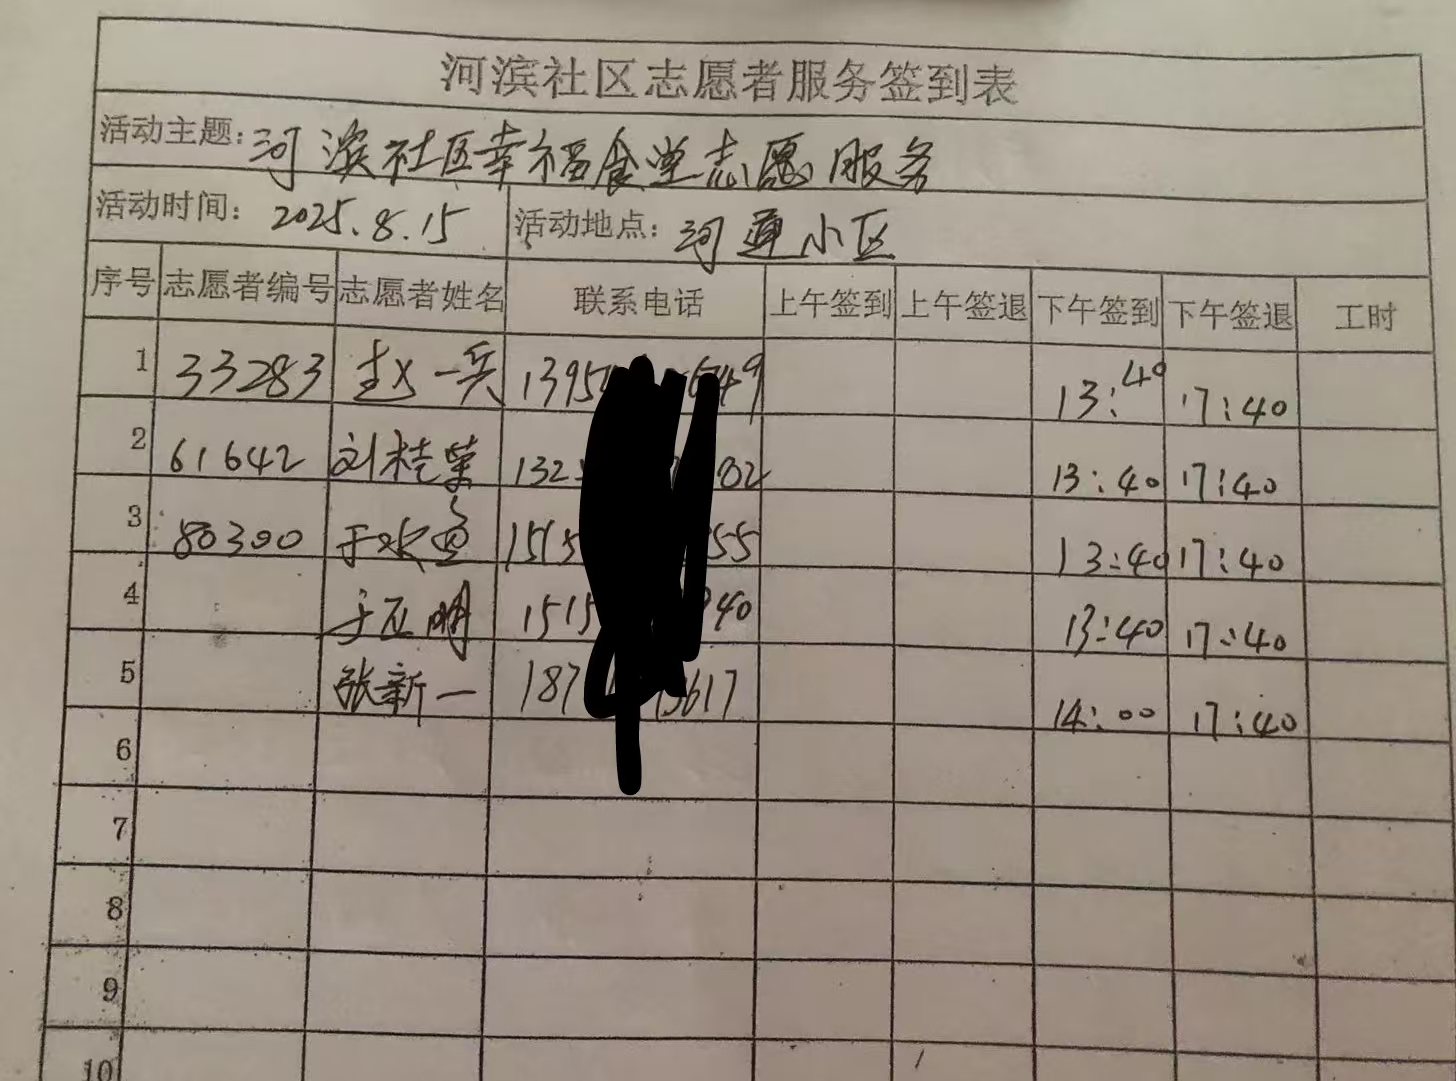 河滨社区志愿者服务签到表
活动主题: 河滨社区幸福食堂志愿服务
活动时间: 2025.8.15 活动地点: 河道小区
序号 志愿者编号 志愿者姓名 联系电话 上午签到 上午签退 下午签到 下午签退 工时
1 33283 赵一兵 1395 49 13:40 17:40
2 61642 刘桂荣 132 02 13:40 17:40
3 80300 于水 1515 55 13:40 17:40
4 于正明 1515 40 13:40 17:40
5 张新一 187 3617 14:00 17:40
6
7
8
9
10